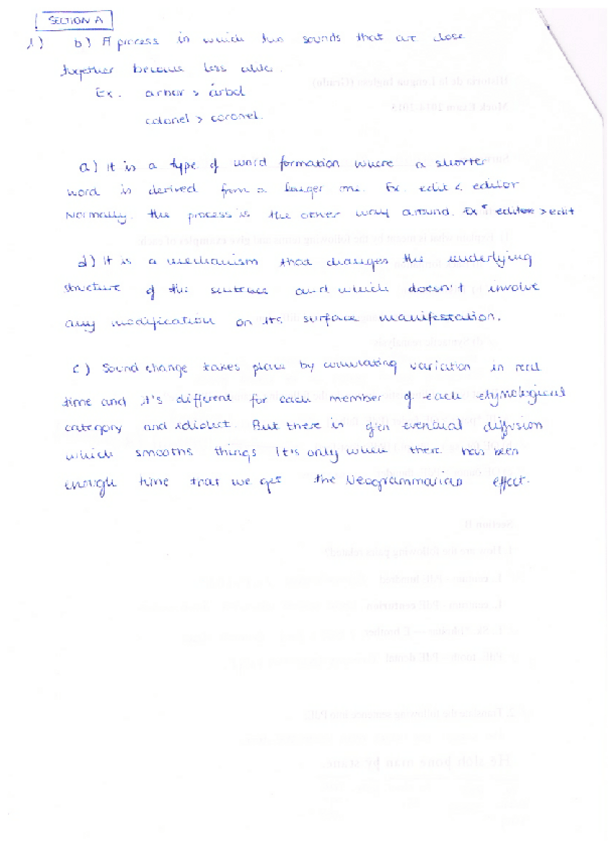 SECTION A
1) b) A process in which two sounds that are close
together become less alike.
Ex. arbor > árbol
colonel > coronel.
a) It is a type of word formation where a shorter
word is derived from a longer one. Ex. edit < editor
Normally, this process is the other way around. Ex editor > edit
d) It is a mechanism that changes the underlying
structure of the sentence and which doesn't involve
any modification on its surface manifestation.
c) Sound change takes place by variation in real
time and it's different for each member of each etymological
category and idiolect. But there is often eventual diffusion
which smooths things It is only when there has been
enough time that we get the Neogrammarian effect.